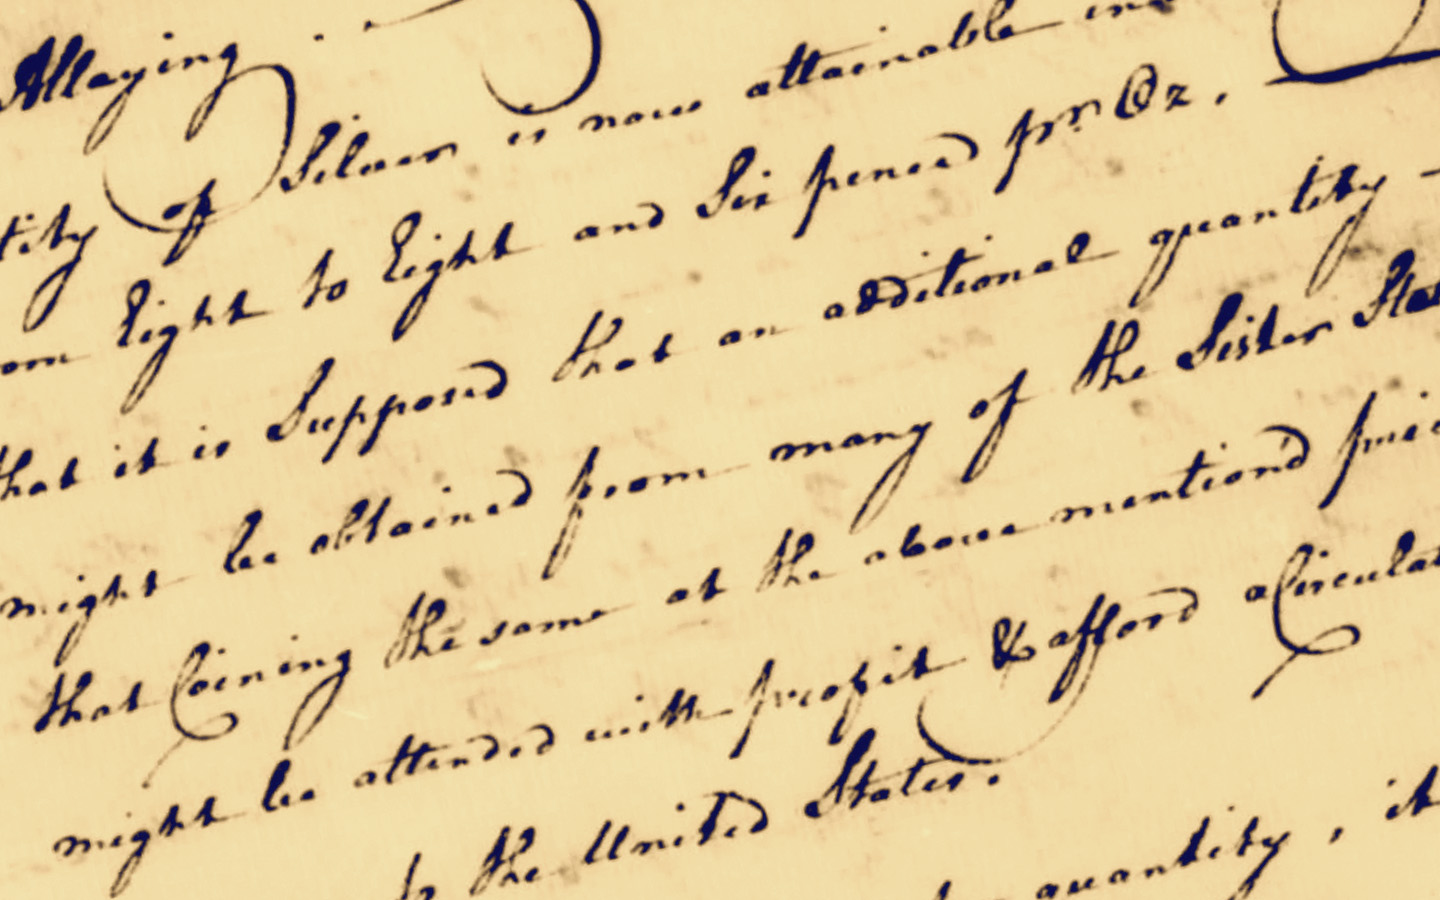 Allaying
tity of Silver is now attainable in
om Eight to Eight and Six pence pr. Oz.
that it is Supposed that an additional quantity
might be obtained from many of the Sister Stat
that Coining the same at the above mention'd pric
might be attended with profit & afford a Circulat
to the United States.
quantity, it